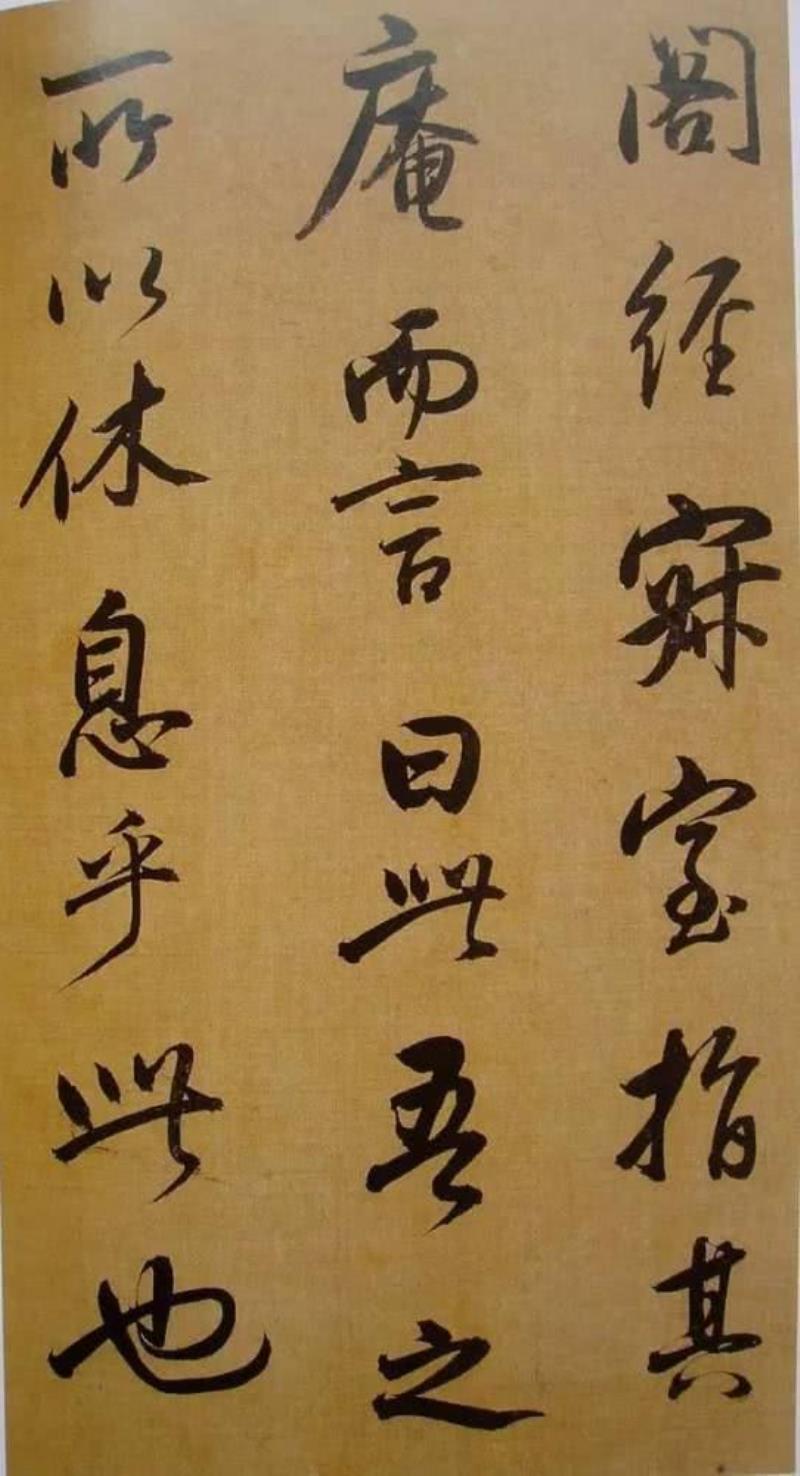 阁经寐室指其
庵而言曰此吾之
所以休息乎此也